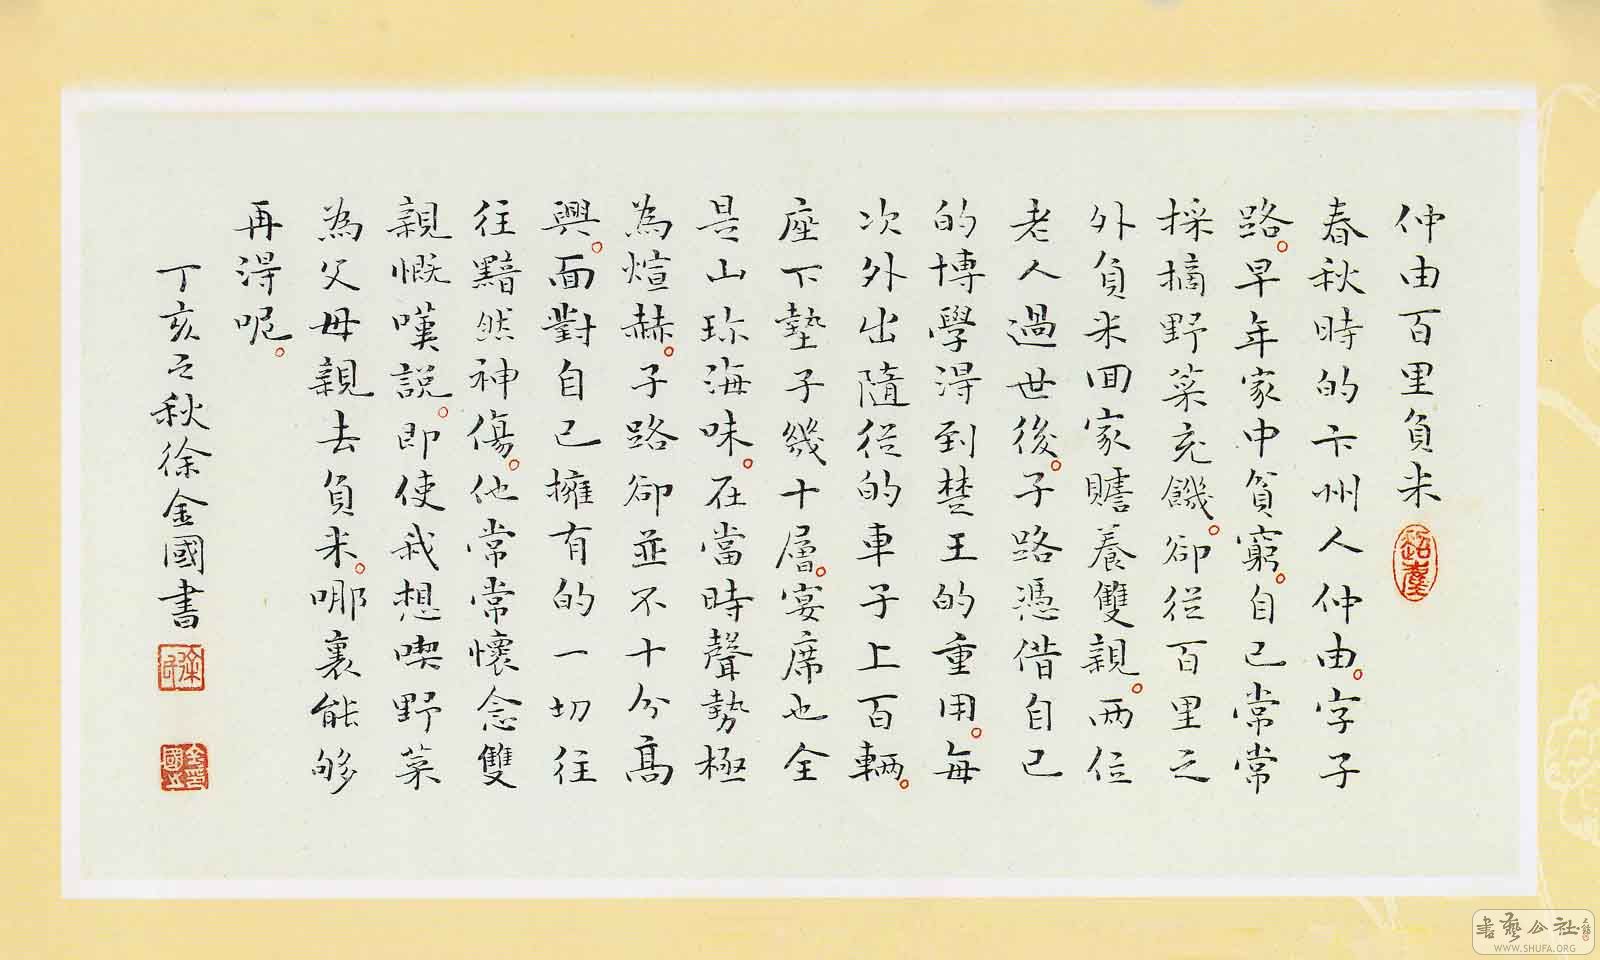 仲由百里負米
春秋時的卞州人仲由。字子
路。早年家中貧窮。自己常常
採摘野菜充饑。卻從百里之
外負米回家贍養雙親。两位
老人過世後。子路憑借自己
的博學得到楚王的重用。每
次外出隨從的車子上百輛。
座下墊子幾十層。宴席也全
是山珍海味。在當時聲勢極
為煊赫。子路卻並不十分高
興。面對自己擁有的一切往
往黯然神傷。他常常懷念雙
親慨嘆說。即使我想喫野菜
為父母親去負米。哪裏能够
再得呢。
丁亥之秋徐金國書
書藝公社
WWW.SHUFA.ORG